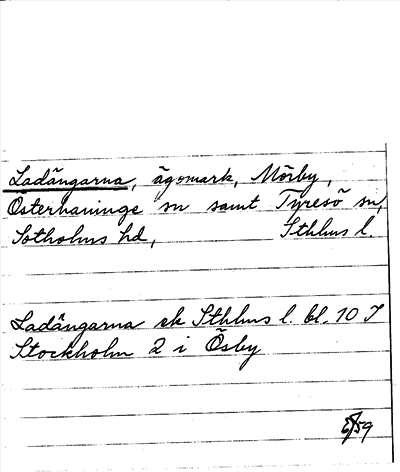 Ladängarna, ägomark, Mörby,
Österhaninge sn samt Tyresö sn,
Sotholms hd, Sthlms l.
Ladängarna ek Sthlms l. bl. 10 J
Stockholm 2 i Ösby